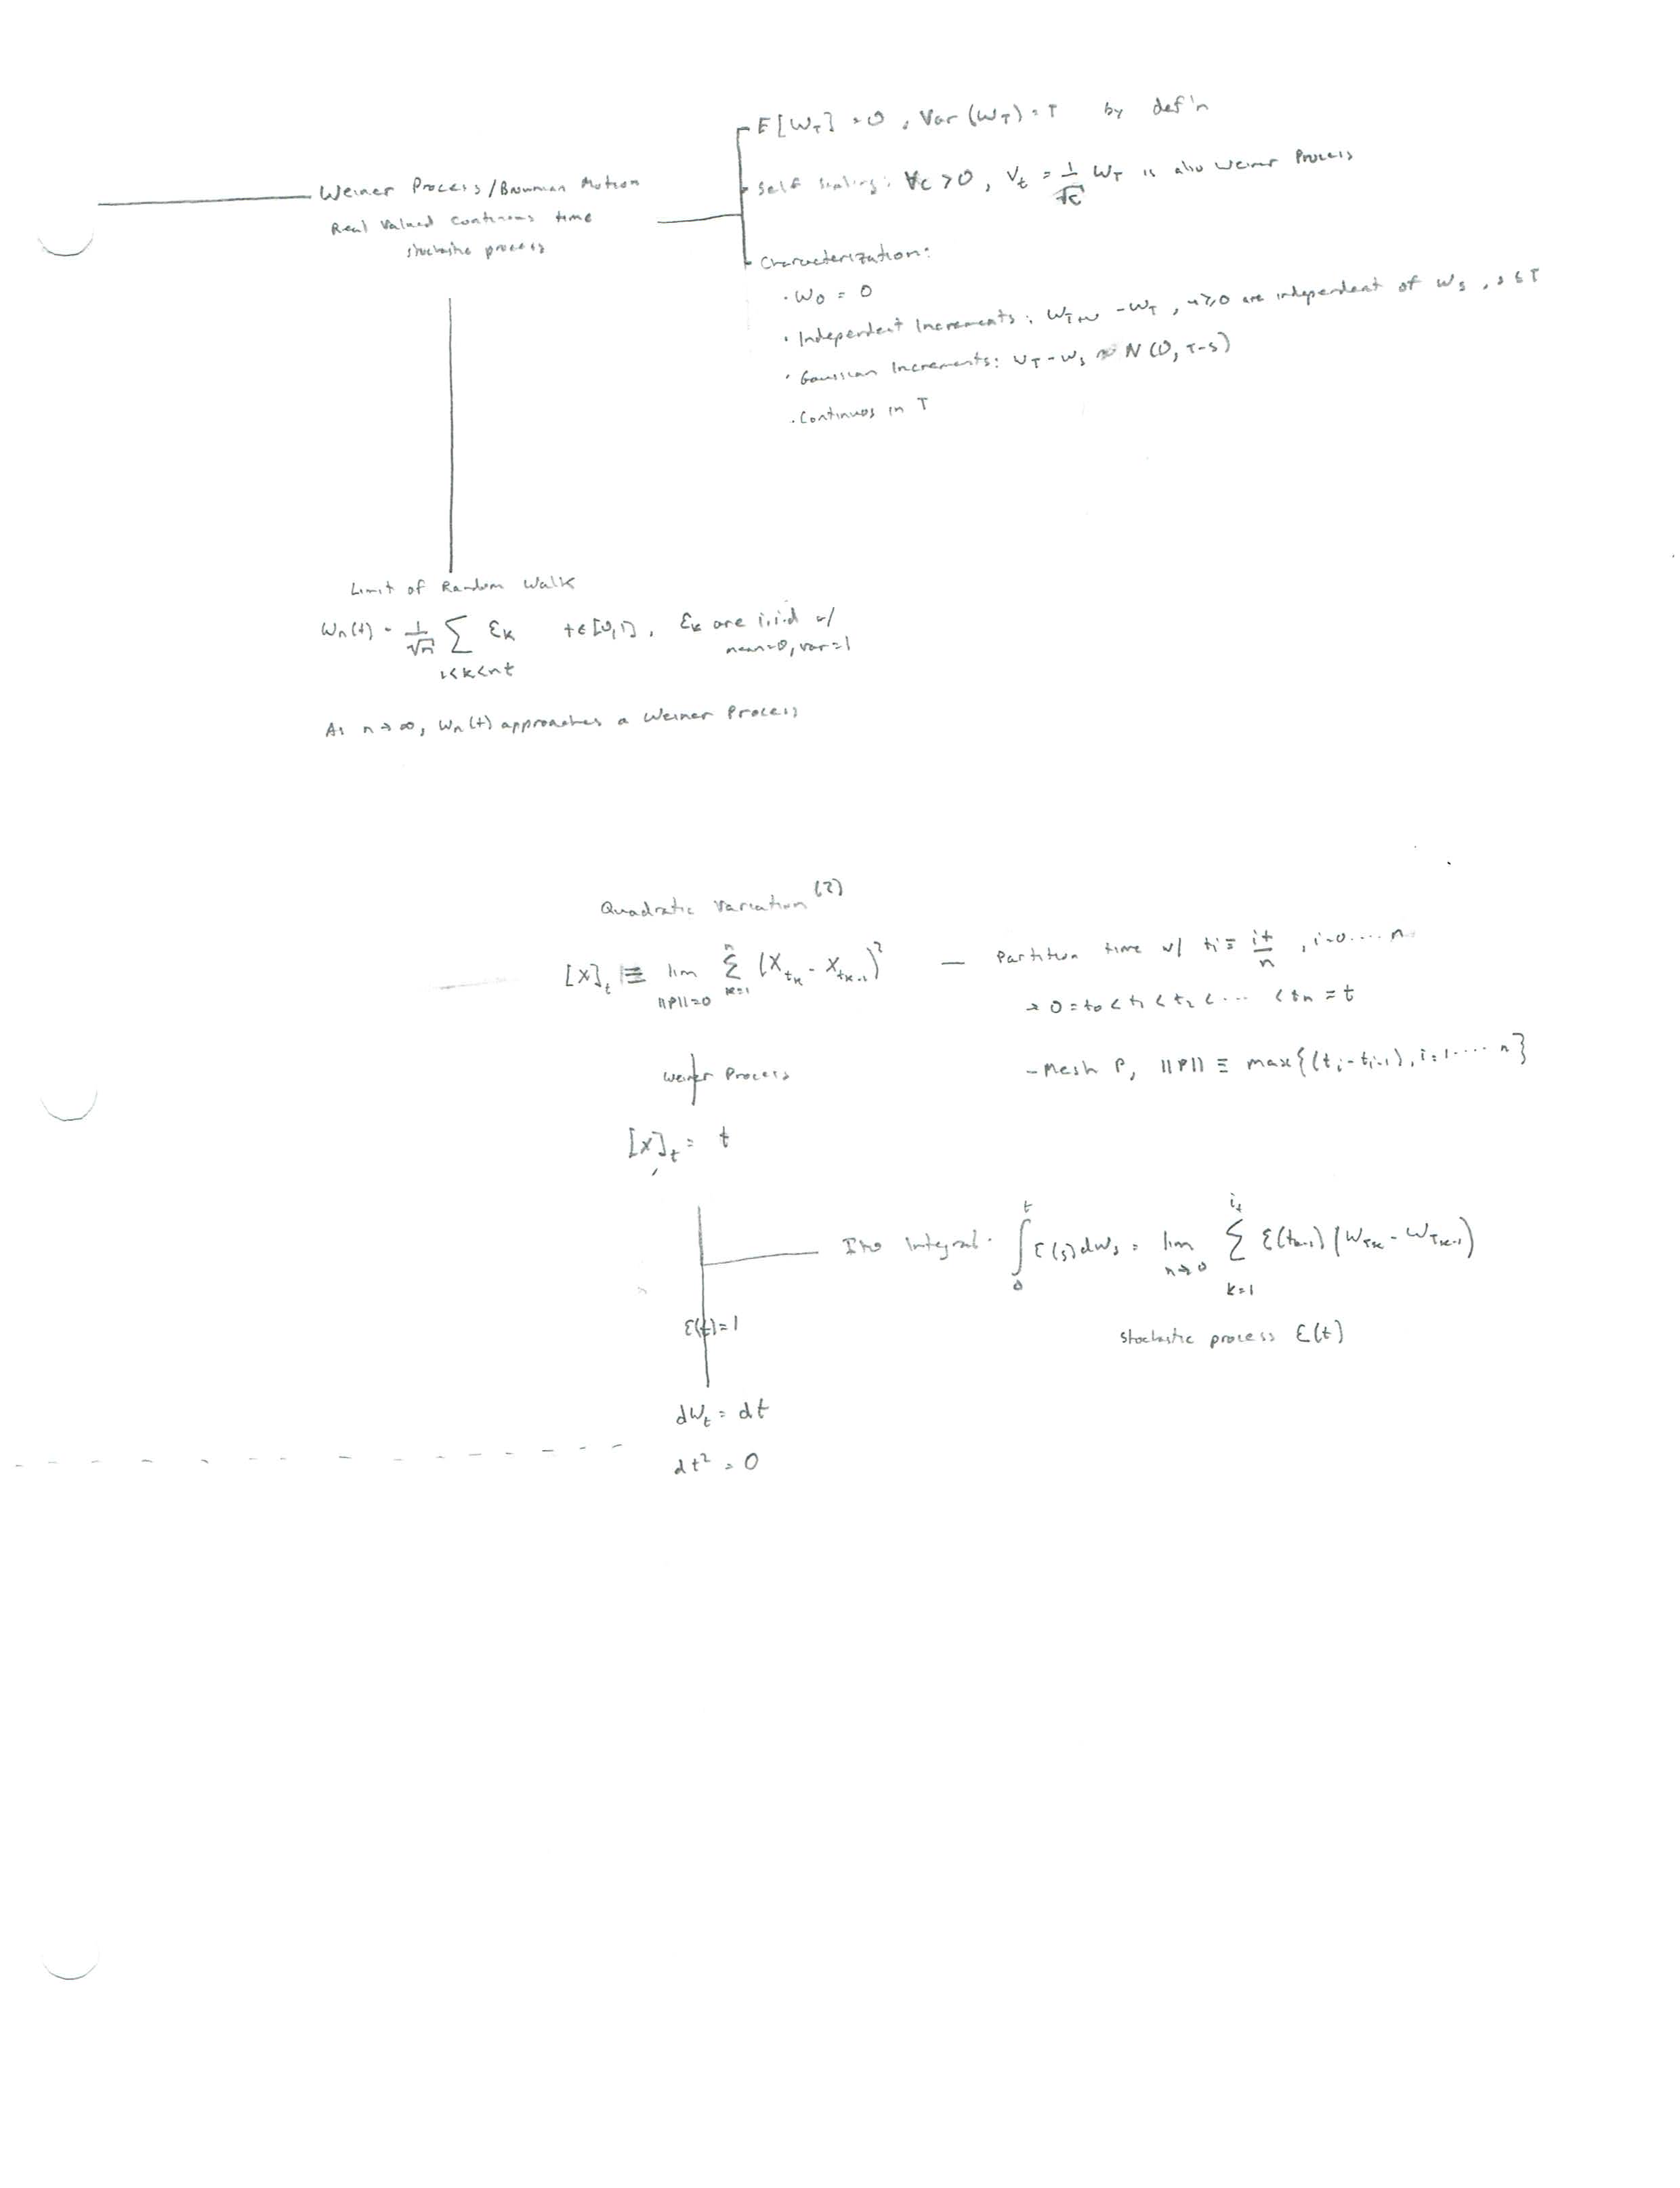 E[W_T] = 0, Var(W_T) = T by def'n
Weiner Process/Brownian Motion
Real Valued continous time
stochastic process
Self Scaling: ∀c > 0, V_t = 1/√c W_T is also Weiner Process
Characterization:
· W_0 = 0
· Independent Increments: W_{T+u} - W_T, u ≥ 0 are independent of W_s, s ≤ T
· Gaussian Increments: W_T - W_s ~ N(0, T-s)
· Continuos in T
Limit of Random Walk
W_n(t) = 1/√n Σ_{1<k<nt} ε_k t ∈ [0,1], ε_k are i.i.d w/
mean=0, var=1
As n → ∞, W_n(t) approaches a Weiner Process
Quadratic Variation (2)
[X]_t ≡ lim_{||P||=0} Σ_{k=1}^{n} (X_{t_k} - X_{t_{k-1}})^2
— Partition time w/ t_i ≡ it/n, i=0....n
→ 0 = t_0 < t_1 < t_2 < ... < t_n = t
- Mesh P, ||P|| ≡ max{(t_i - t_{i-1}), i=1.....n}
Weiner Process
[X]_t = t
Ito Integral. ∫_0^t ε(s)dW_s = lim_{n→0} Σ_{k=1}^{i_t} ε(t_{k-1})(W_{T_k} - W_{T_{k-1}})
ε(t)=1
stochastic process ε(t)
dW_t = dt
dt² = 0